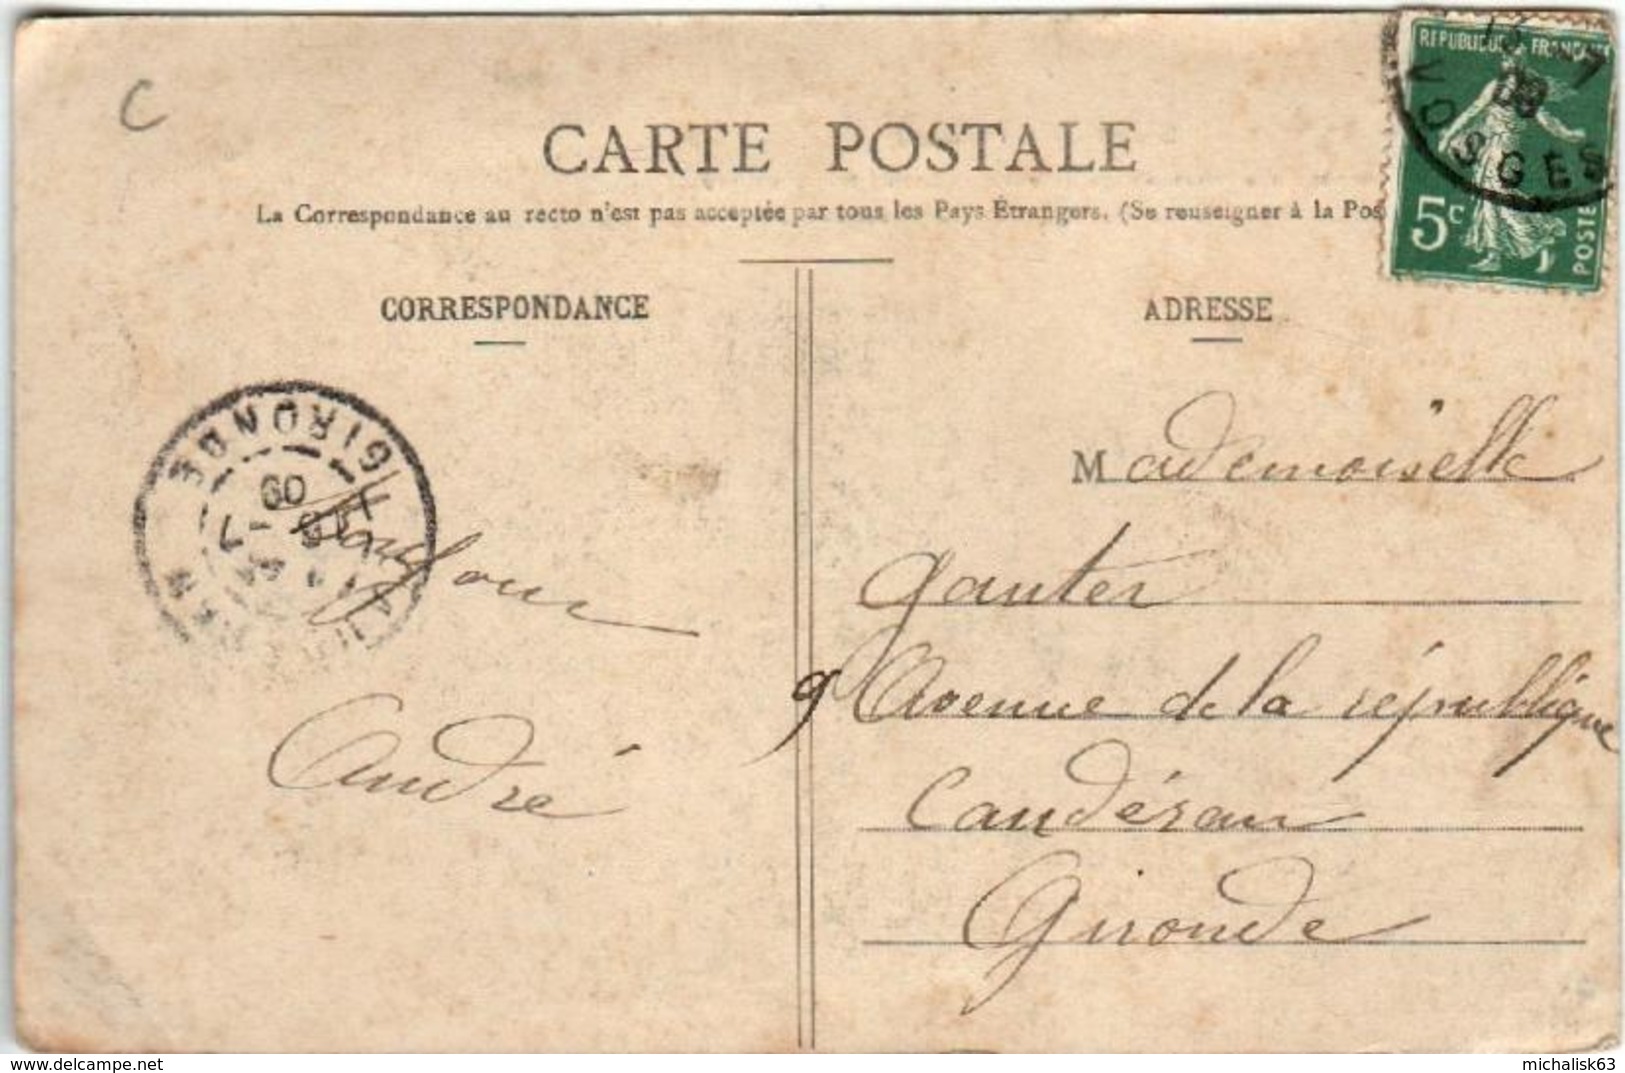 C
REPUBLIQUE FRANÇAISE
VOSGES
09
5c
POSTES
CARTE POSTALE
La Correspondance au recto n'est pas acceptée par tous les Pays Étrangers. (Se renseigner à la Pos
CORRESPONDANCE
ADRESSE
GIRONDE
09
Bonjour
André
Mademoiselle
Ganter
9 Avenue de la république
Caudéran
Gironde
delcampe.net
michalisk63